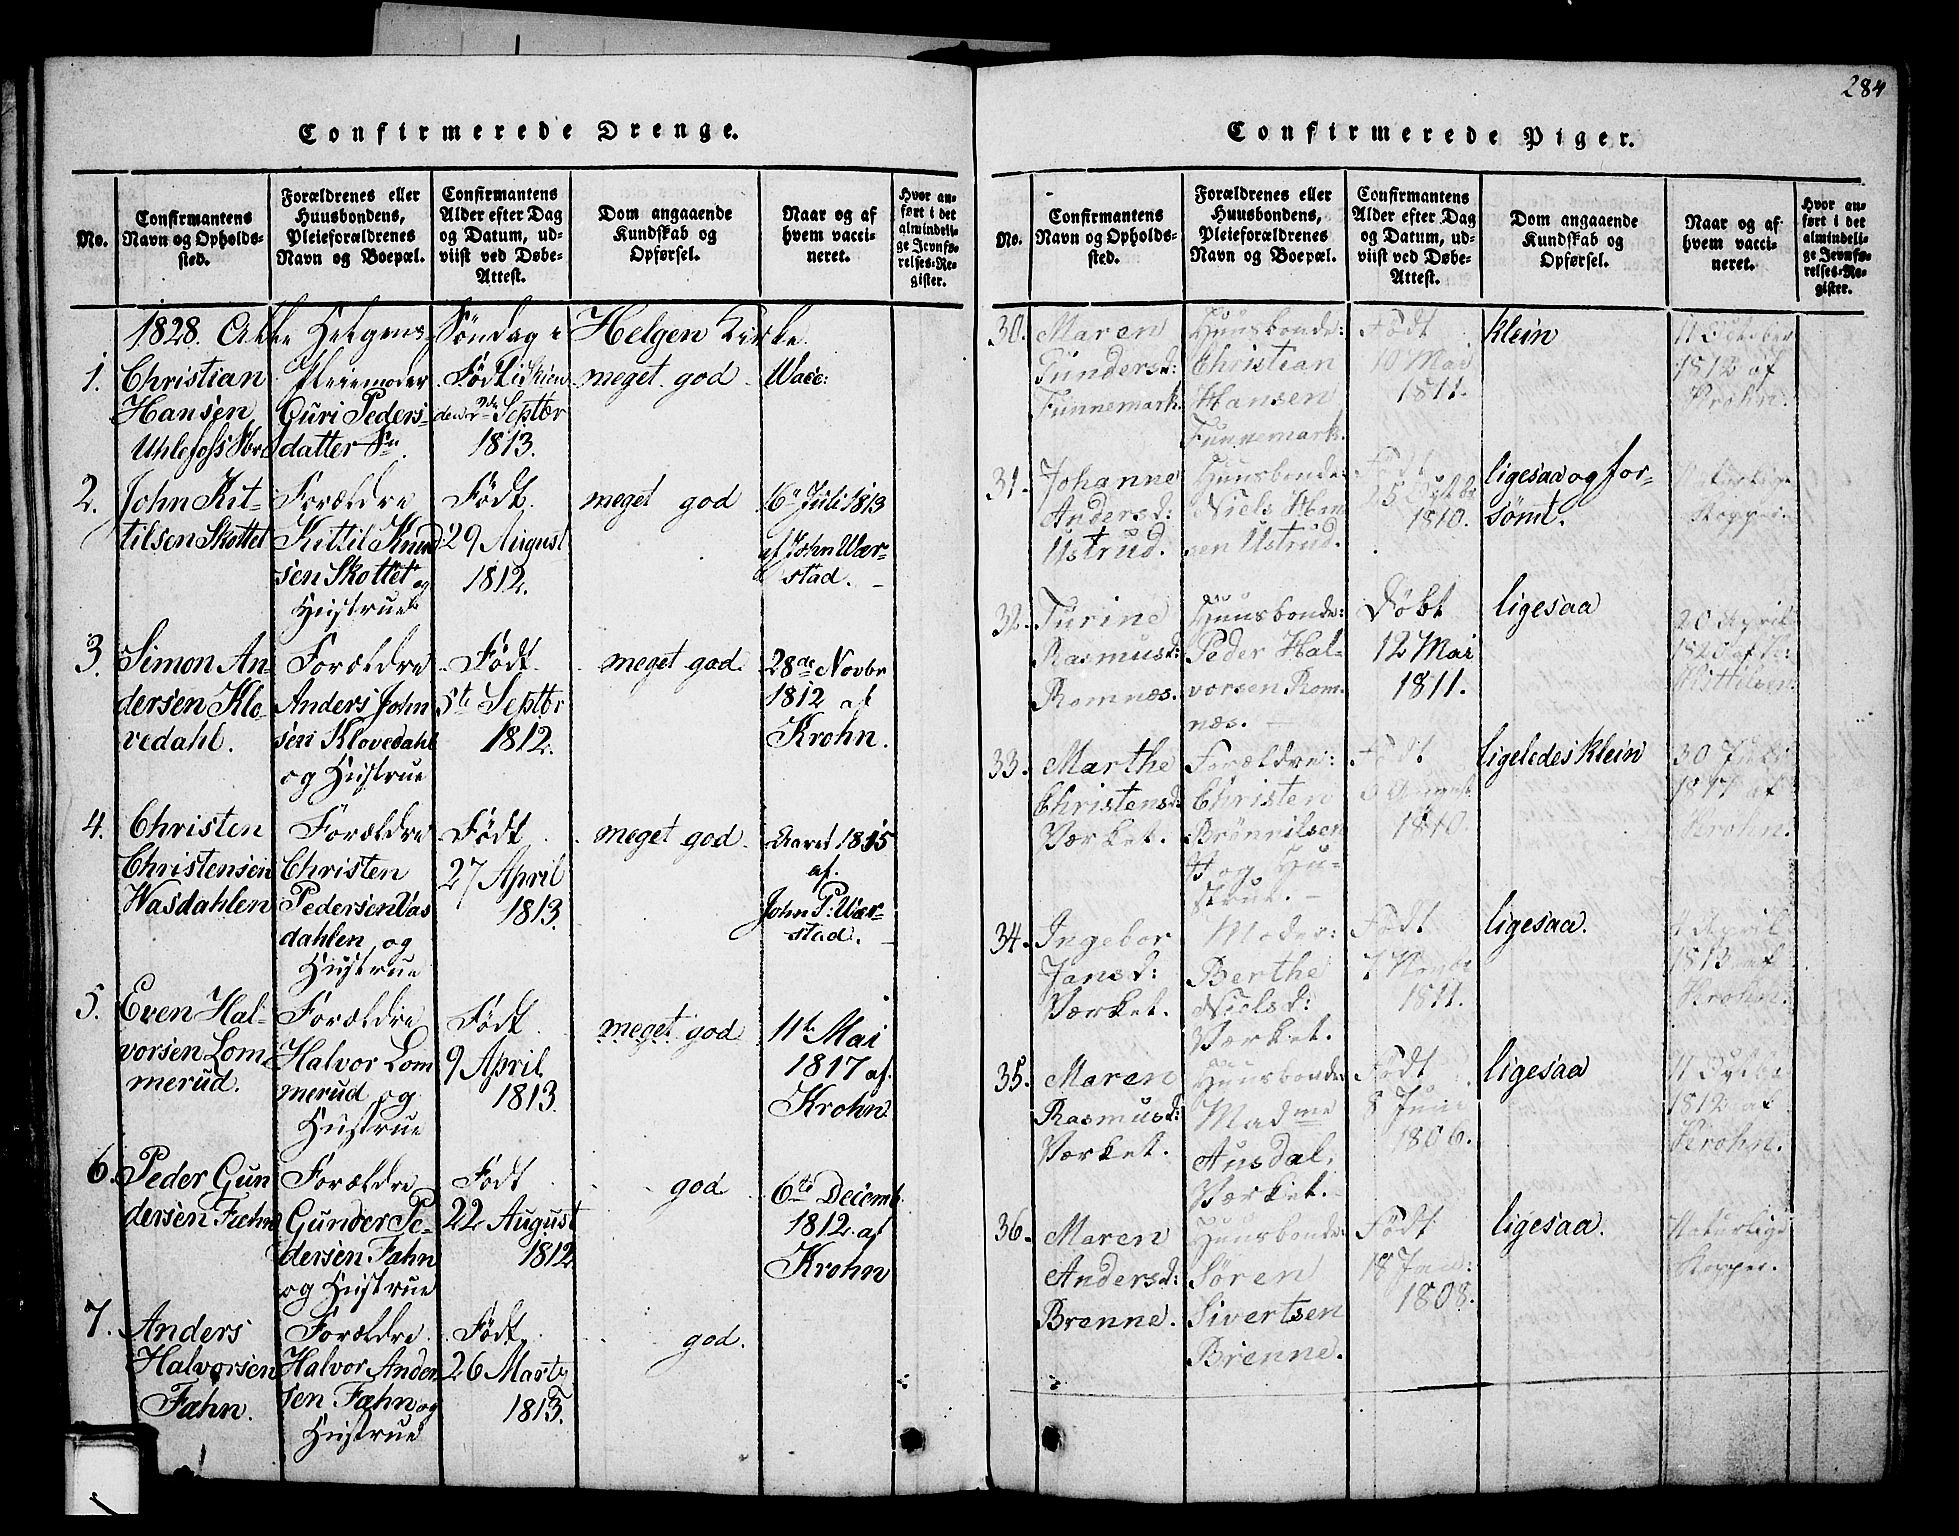 284
Confirmerede Drenge.
No.
Confirmantens
Navn og Opholds-
sted.
Forældrenes eller
Huusbondens,
Pleieforældrenes
Navn og Boepæl.
Confirmantens
Alder efter Dag
og Datum, ud-
viist ved Døbe-
Attest.
Dom angaaende
Kundskab og
Opførsel.
Naar og af
hvem vacci-
neret.
Hvor an-
ført i det
almindeli-
ge Jevnfø-
relses-Re-
gister.
1828. Alle Helgens Søndag i Helgen Kirke.
1.
Christian
Hansen
Pleiemoder
Guri Peders-
datter
Født i Skien
den 2de Septbr
1813.
meget god
Vacc:
2.
John Kit-
tilsen Skottet
Forældre
Kittil Knud
sen Skottet og
Hustrue
Født
29 August
1812.
meget god
16 Juli 1813
af John Wær-
stad.
3.
Simon An-
dersen Klo-
vedahl.
Forældre
Anders John
sen Klovedahl
og Hustrue
Født
5te Septbr
1812.
meget god
28de Novbr
1812 af
Krohn.
4.
Christen
Christensen
Wasdahlen
Forældre
Christen
Pedersen Vas
dahlen og
Hustrue
Født
27 April
1813.
meget god.
Aaret 1815
af
John P: Wær-
stad.
5.
Even Hal-
vorsen Lom
merud.
Forældre
Halvor Lom
merud og
Hustrue
Født
9 April
1813.
meget god
11te Mai
1817 af
Krohn
6.
Peder Gun
dersen Fæhn
Forældre
Gunder Pe-
dersen Fæhn
og Hustrue
Født
22 August
1812
god
6te Decemb
1812 af
Krohn
7.
Anders
Halvorsen
Fæhn.
Forældre
Halvor Ander
sen Fæhn og
Hustrue
Født
26 Marts
1813.
god.
Confirmerede Piger.
No.
Confirmantens
Navn og Opholds-
sted.
Forældrenes eller
Huusbondens,
Pleieforældrenes
Navn og Boepæl.
Confirmantens
Alder efter Dag
og Datum, ud-
viist ved Døbe-
Attest.
Dom angaaende
Kundskab og
Opførsel.
Naar og af
hvem vacci-
neret.
Hvor an-
ført i det
almindeli-
ge Jevnfø-
relses-Re-
gister.
30.
Maren
Gundersd:
Funnemark.
Huusbonde:
Christian
Hansen
Funnemark.
Født
10 Mai
1811.
klein
11 October
1812 af
Krohn.
31.
Johanne
Andersd:
Ustrud.
Huusbonde:
Niels Han
sen Ustrud.
Født
1810.
ligesaa og for-
sømt.
Naturlige
Kopper.
32.
Turine
Rasmusd:
Romnæs.
Huusbonde:
Peder Hal-
vorsen Rom-
næs.
Døbt
12 Mai
1811.
ligesaa
20 April
Kittilsen.
33.
Marthe
Christensd:
Værket.
Forældre:
Christen
Brønnilsen
og Hu-
strue.
Født
1810.
ligeledes klein
30
af
Krohn.
34.
Ingebor
Jansd:
Værket.
Moder:
Berthe
Nielsd:
Værket.
Født
7 Novbr
1811.
ligesaa.
April
1813 af
Krohn.
35.
Maren
Rasmusd:
Værket.
Huusbonde:
Madme
Ausdal,
Værket.
Født
8 Juni
1806.
ligesaa
11 Octbr
1812 af
Krohn.
36.
Maren
Andersd:
Brenne.
Huusbonde:
Søren
Sivertsen
Brenne.
Født
18 Jan:
1808.
ligesaa.
Naturlige
Kopper.